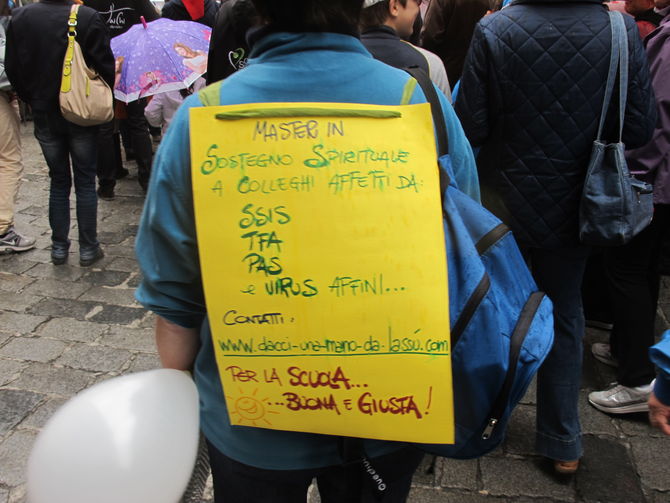 MASTER IN
SOSTEGNO SPIRITUALE
A COLLEGHI AFFETTI DA:
SSIS
TFA
PAS
e VIRUS AFFINI...
CONTATTI:
www.dacci-una-mano-da-lassú.com
PER LA SCUOLA...
...BUONA E GIUSTA!